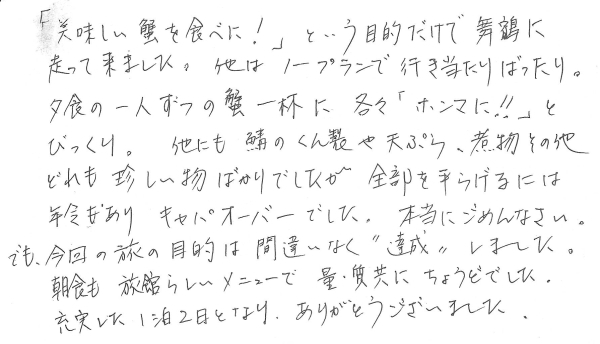 「美味しい蟹を食べに!」という目的だけで舞鶴に
走って来ました。他はノープランで行き当たりばったり。
夕食の一人ずつの蟹一杯に各々「ホンマに!!」と
びっくり。他にも鯖のくん製や天ぷら、煮物その他
どれも珍しい物ばかりでしたが全部を平らげるには
年令もあり キャパオーバーでした。本当にごめんなさい。
でも、今回の旅の目的は間違いなく〝達成〟しました。
朝食も旅館らしいメニューで量・質共にちょうどでした。
充実した1泊2日となり、ありがとうございました。